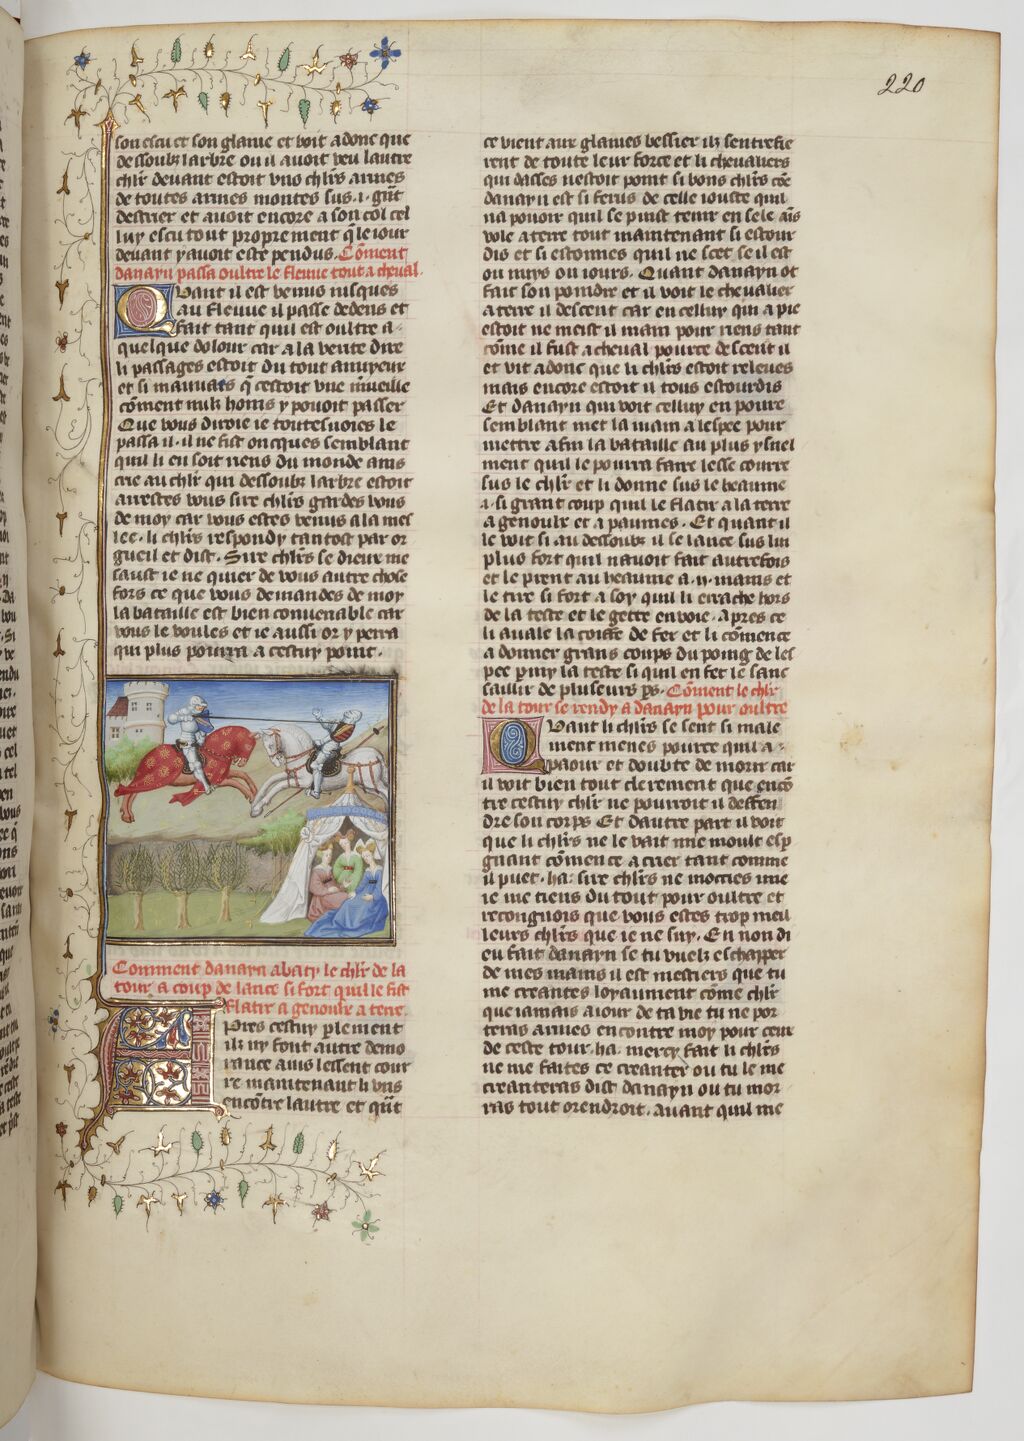 220
son escu et son glaiue et voit adonc que
dessoubz larbre ou il auoit veu lautre
chlr̄ deuant estoit vns chlr̄s armes
de toutes armes montes sus .i. gn̄t
destrier et auoit encore a son col cel
luy escu tout proprement q̄ le iour
deuant y auoit este pendus. Cōment
danayn passa oultre le fleuue tout a cheual.
Quant il est venus iusques
au fleuue il passe dedens et
fait tant quil est oultre a
quelque dolour car a la verite dire
li passages estoit du tout anuyeux
et si mauuais q̄ cestoit vne m̄ueille
cōment nulz homs y pouoit passer
Que vous diroie ie toutesuoies le
passa il. il ne fist oncques semblant
quil li en soit riens du monde ains
crie au chlr̄ qui dessoubz larbre estoit
arrestes vous sire chlr̄s gardes vous
de moy car vous estes venus a la mes
lee. li chlr̄s respondy tantost par or
gueil et dist. Sire chlr̄s se dieux me
sault ie ne quier de vous autre chose
fors ce que vous demandes de moy
la bataille est bien conuenable car
vous le voules et ie aussi or y perra
qui plus pourra a cestuy point.
Comment danayn abaty le chlr̄ de la
tour a coup de lance si fort quil le fist
flatir a genoulx a terre.
Apres cestuy p̄lement
ilz ny font autre demo
rance ains lessent cour
re maintenant li vns
encōtre lautre et qn̄t
ce vient aux glaiues bessier ilz sentrefie
rent de toute leur force et li cheualiers
qui dasses nestoit point si bons chlr̄s cōe
danayn est si ferus de celle iouste quil
na pouoir quil se puist tenir en sele ais̄
vole a terre tout maintenant si estour
dis et si estonnes quil ne scet se il est
ou nuys ou iours. Quant danayn ot
fait son poindre et il voit le cheualier
a terre il descent car en celluy qui a pie
estoit ne meist il main pour riens tant
cōme il fust a cheual pource descent il
et vit adonc que li chlr̄s estoit releues
mais encore estoit il tous estourdis
Et danayn qui voit celluy en poure
semblant met la main a lespee pour
mettre a fin la bataille au plus ysnel
ment quil le pourra faire lesse courre
sus le chlr̄ et li donne sus le heaume
.i. si grant coup quil le flatir a la terre
a genoulx et a paumes. Et quant il
le voit si au dessoubz il se lance sus lui
plus fort quil nauoit fait autrefois
et le prent au heaume a .ii. mains et
le tire si fort a soy quil li errache hors
de la teste et le gette en voie. apres ce
li auale la coiffe de fer et li cōmence
a donner grans coups du poing de les
pee p̄my la teste si quil en fet le sanc
saillir de plusieurs ps̄. Cōment le chlr̄
de la tour se rendy a danayn pour oultre
Quant li chlr̄s se sent si male
ment menes pource quil a
paour et doubte de morir car
il voit bien tout clerement que encō
tre cestuy chlr̄ ne pourroit il deffen
dre son corps Et dautre part il voit
que li chlr̄s ne le vait mie moult esp
gnant cōmence a crier tant comme
il puet. ha: sire chlr̄s ne mocties mie
ie me tiens du tout pour oultre et
recongnois que vous estes trop meil
leurs chlr̄s que ie ne suy. En non di
eu fait danayn se tu vuelz eschapper
de mes mains il est mestiers que tu
me creantes loyaument cōme chlr̄
que iamais a iour de ta vie tu ne por
teras armes encontre moy pour ceux
de ceste tour. ha: mercy fait li chlr̄s
ne me faites ce creanter ou tu le me
creanteras dist danayn ou tu mor
ras tout orendroit. Auant quil me